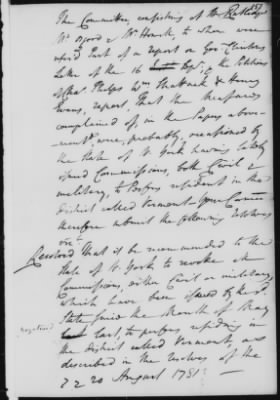 The Committee, consisting of Mr Rutledge
Mr Osgood & Mr Howell, to whom were
referd Part of a report on Govr Clintons
Letter of the 16 Septr, & the Petitions
of Chas Phelps Wm Shattuck & Henry
Evans, report, That the measures
complained of, in the Papers above
mentiond, were, probably, occasioned by
the State of N. York having lately
issued Commissions, both Civil &
military, to Persons resident in the
district called Vermont. Your Committee
therefore submit the following Resolves
viz.
Resolved That it be recommended to the
State of N. York to revoke all
Commissions, either Civil or military,
which have been issued by the sd
State since the Month of May
last, to persons residing in
the district called Vermont, as
described in the resolves of the
7 & 20 August 1781: —
negatived